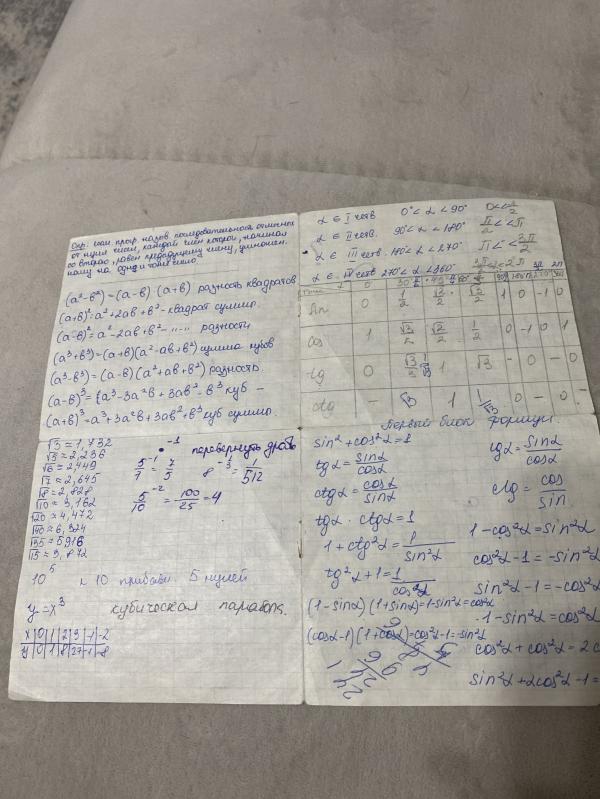 Опр. геом прогр. назов. последовательность отличных
от нуля чисел, каждый член которой, начиная
со второго, равен предыдущему члену, умножен.
ному на одно и тоже число.
(a²-b²)=(a-b)(a+b) разность квадратов
(a+b)²=a²+2ab+b²-квадрат суммы.
(a-b)²=a²-2ab+b²-"-"- разности
(a³+b³)=(a+b)(a²-ab+b²) сумма кубов
(a³-b³)=(a-b)(a²+ab+b²) разность
(a-b)³=(a³-3a²b+3ab²-b³ куб -
(a+b)³=a³+3a²b+3ab²+b³ куб суммы.
√3=1,732
√5=2,236
√6=2449
√7=2,645
√8=2,828
√10=3,162
√20=4,472
√40=6,324
√35=5916
√15=3,872
-1 перевернуть дробь
8⁻³=1/512
5/10⁻²=100/25=4
10⁵ к 10 прибавь 5 нулей
y=x³ кубическая парабола.
x|0|1|2|3|-1|-2
y|0|1|8|27|-1|-8
α ∈ I четв 0°<α<90°
α ∈ II четв. 90°<α<180° π/2<α<π
α ∈ III четв. 180°<α<270° π<α<3π/2
270°<α<360°
Sin 0 1/2 √2/2 √3/2 1 0 -1 0
Cos 1 √3/2 √2/2 1/2 0 -1 0 1
tg 0 √3/3 1 √3 - 0 - 0
ctg - √3 1 1/√3 0 - 0 -
Первый блок формул.
sin²+cos²α=1
tgα=sinα/cosα
ctgα=cosα/sinα
tgα·ctgα=1
1+ctg²α=1/sin²α
tg²α+1=1/cos²α
(1-sinα)(1+sinα)=1-sin²α=cos²α
(cosα-1)(1+cosα)=cos²α-1=-sin²α
tgα=sinα/cosα
ctg=cos/sin
1-cos²α=sin²α
cos²α-1=-sin²α
sin²α-1=-cos²α
1-sin²α=cos²α
cos²α+cos²α=2c
sin²α+2cos²α-1=